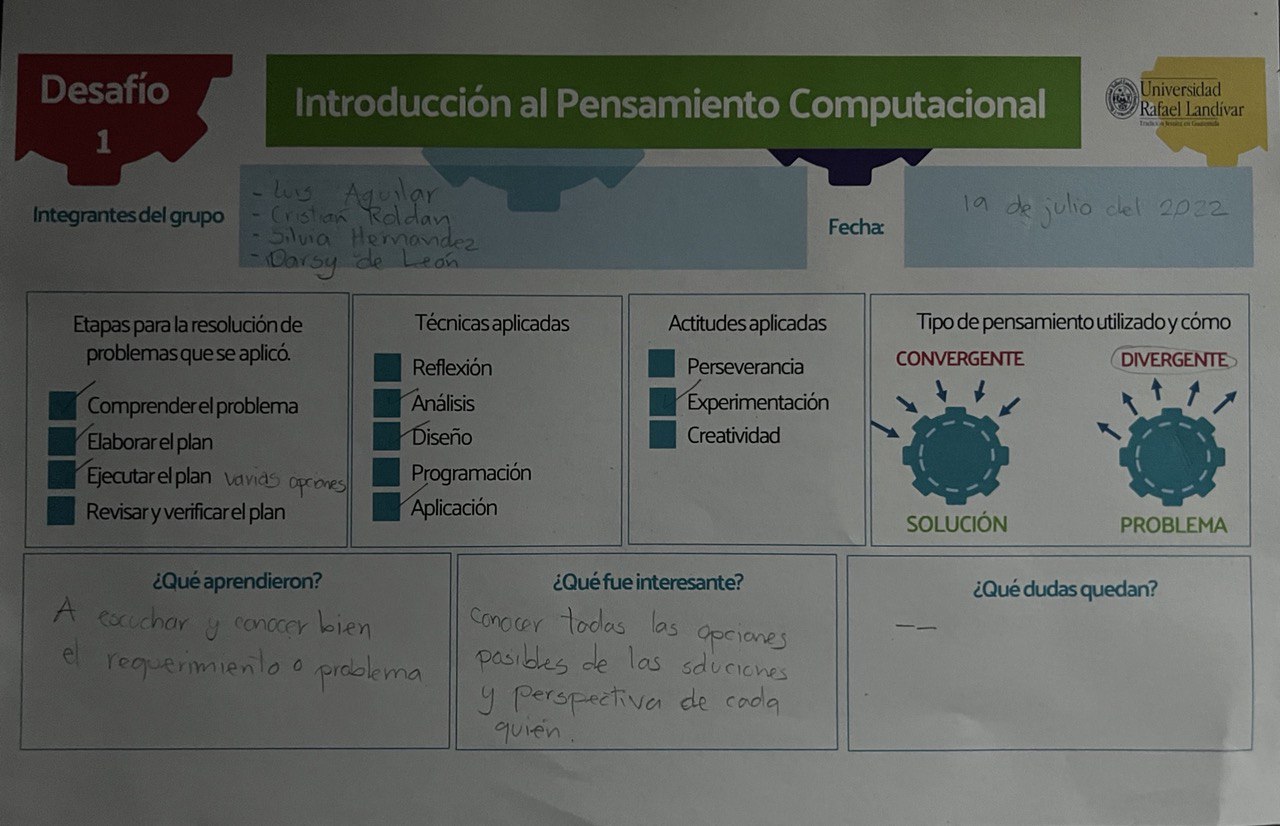 Desafío
1
Introducción al Pensamiento Computacional
Universidad
Rafael Landívar
Tradición Jesuita en Guatemala
Integrantes del grupo
- Luis Aguilar
- Cristian Roldan
- Silvia Hernandez
- Darsy de León
Fecha:
19 de julio del 2022
Etapas para la resolución de
problemas que se aplicó.
Comprender el problema
Elaborar el plan
Ejecutar el plan varias opciones
Revisar y verificar el plan
Técnicas aplicadas
Reflexión
Análisis
Diseño
Programación
Aplicación
Actitudes aplicadas
Perseverancia
Experimentación
Creatividad
Tipo de pensamiento utilizado y cómo
CONVERGENTE
DIVERGENTE
SOLUCIÓN
PROBLEMA
¿Qué aprendieron?
A escuchar y conocer bien
el requerimiento o problema
¿Qué fue interesante?
Conocer todas las opciones
posibles de las soluciones
y perspectiva de cada
quién.
¿Qué dudas quedan?
— —